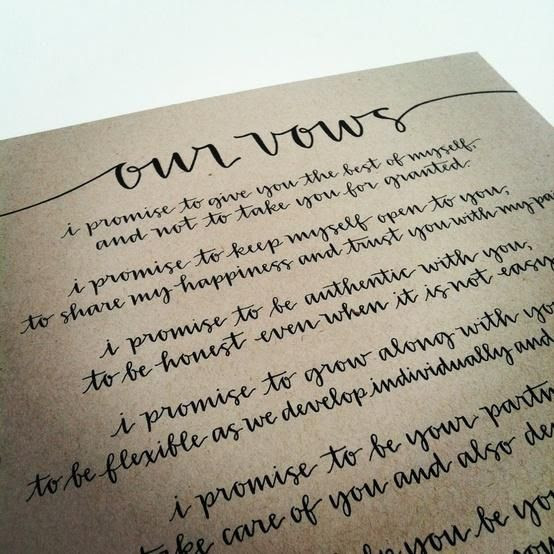 our vows
i promise to give you the best of myself,
and not to take you for granted.
i promise to keep myself open to you,
to share my happiness and trust you with my pa
i promise to be authentic with you,
to be honest even when it is not easy
i promise to grow along with yo
to be flexible as we develop individually and
i promise to be your partn
take care of you and also de
you be yo